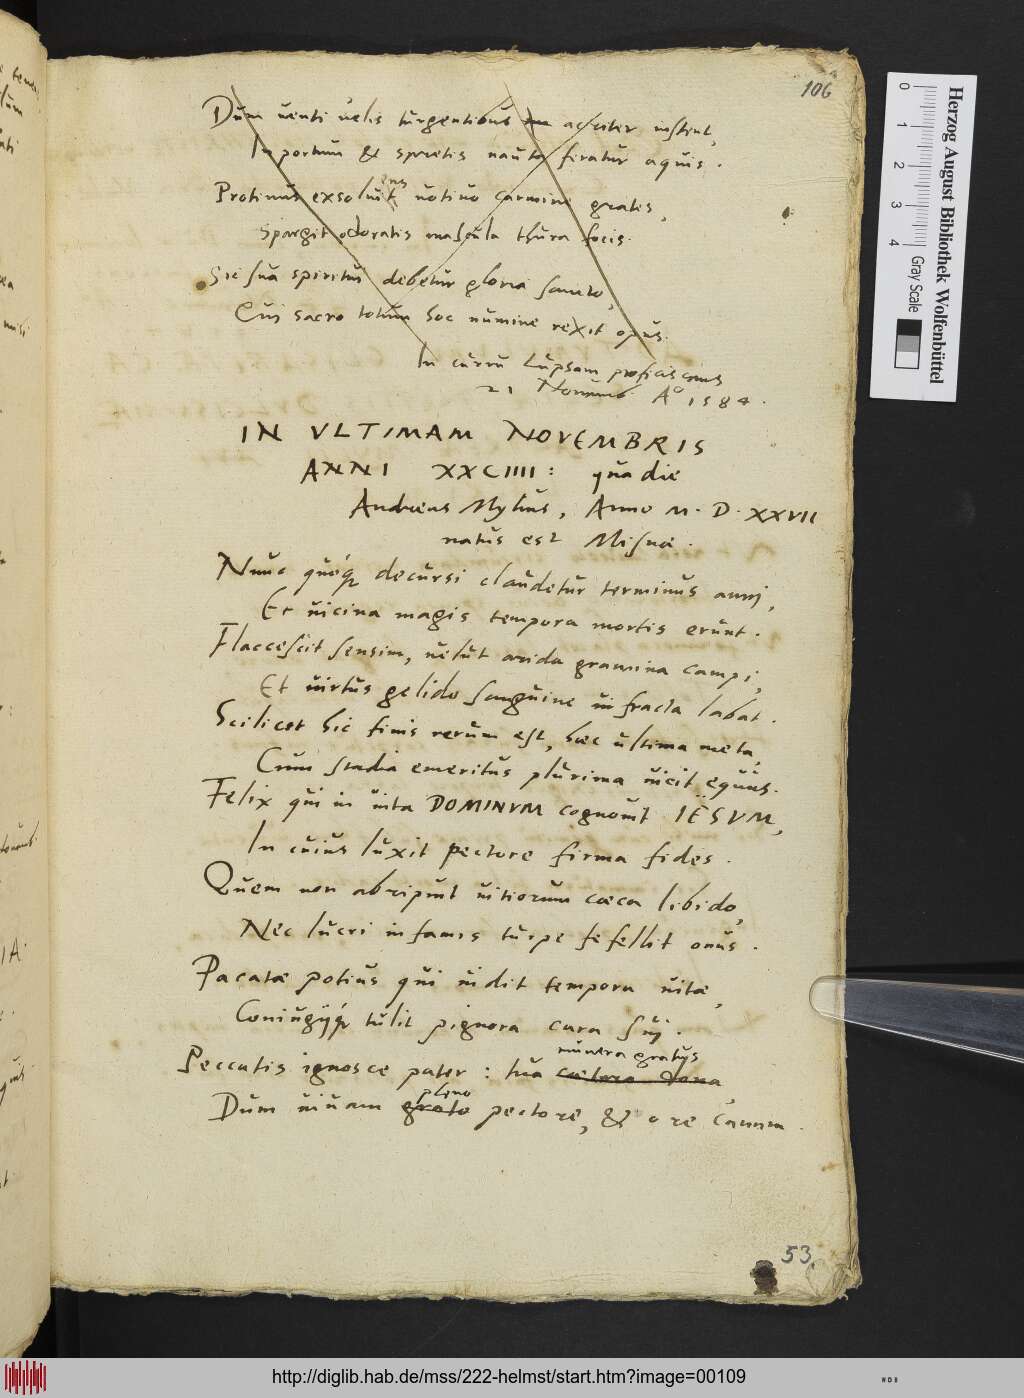 106
Dum uenti uelis turgentibus acriter instent,
In portum & spretis nauta feratur aquis.
Protinus exsoluens uotiuo carmine grates,
Spargit odoratis mascula thura focis.
Sic sua spiritui debetur gloria sancto,
Cui sacro totum hoc numine rexit opus.
In curru Lipsam proficiscens
21 Nouemb. A° 1584.
IN VLTIMAM NOVEMBRIS
ANNI XXCIIII: qua die
Andreas Mylius, Anno M. D. XXVII
natus est Misnæ.
Nunc quoq; decursi claudetur terminus anni,
Et uicina magis tempora mortis erunt.
Flaccescit sensim, uelut arida gramina campi,
Et uirtus gelido sanguine infracta labat.
Scilicet hic finis rerum est, hæc ultima meta,
Cum stadia emeritus plurima uicit equus.
Felix qui in uita DOMINVM cognouit IËSVM,
In cuius luxit pectore firma fides.
Quem non abripuit uitiorum cæca libido,
Nec lucri infamis turpe fefellit onus.
Pacatæ potius qui uidit tempora uitæ,
Coniugijq; tulit pignora cara sui.
munera gratus
Peccatis ignosce pater: tua cætera dona,
pleno
Dum uiuam grato pectore, & ore canam.
53
Herzog August Bibliothek Wolfenbüttel
0 1 2 3 4 Gray Scale
http://diglib.hab.de/mss/222-helmst/start.htm?image=00109